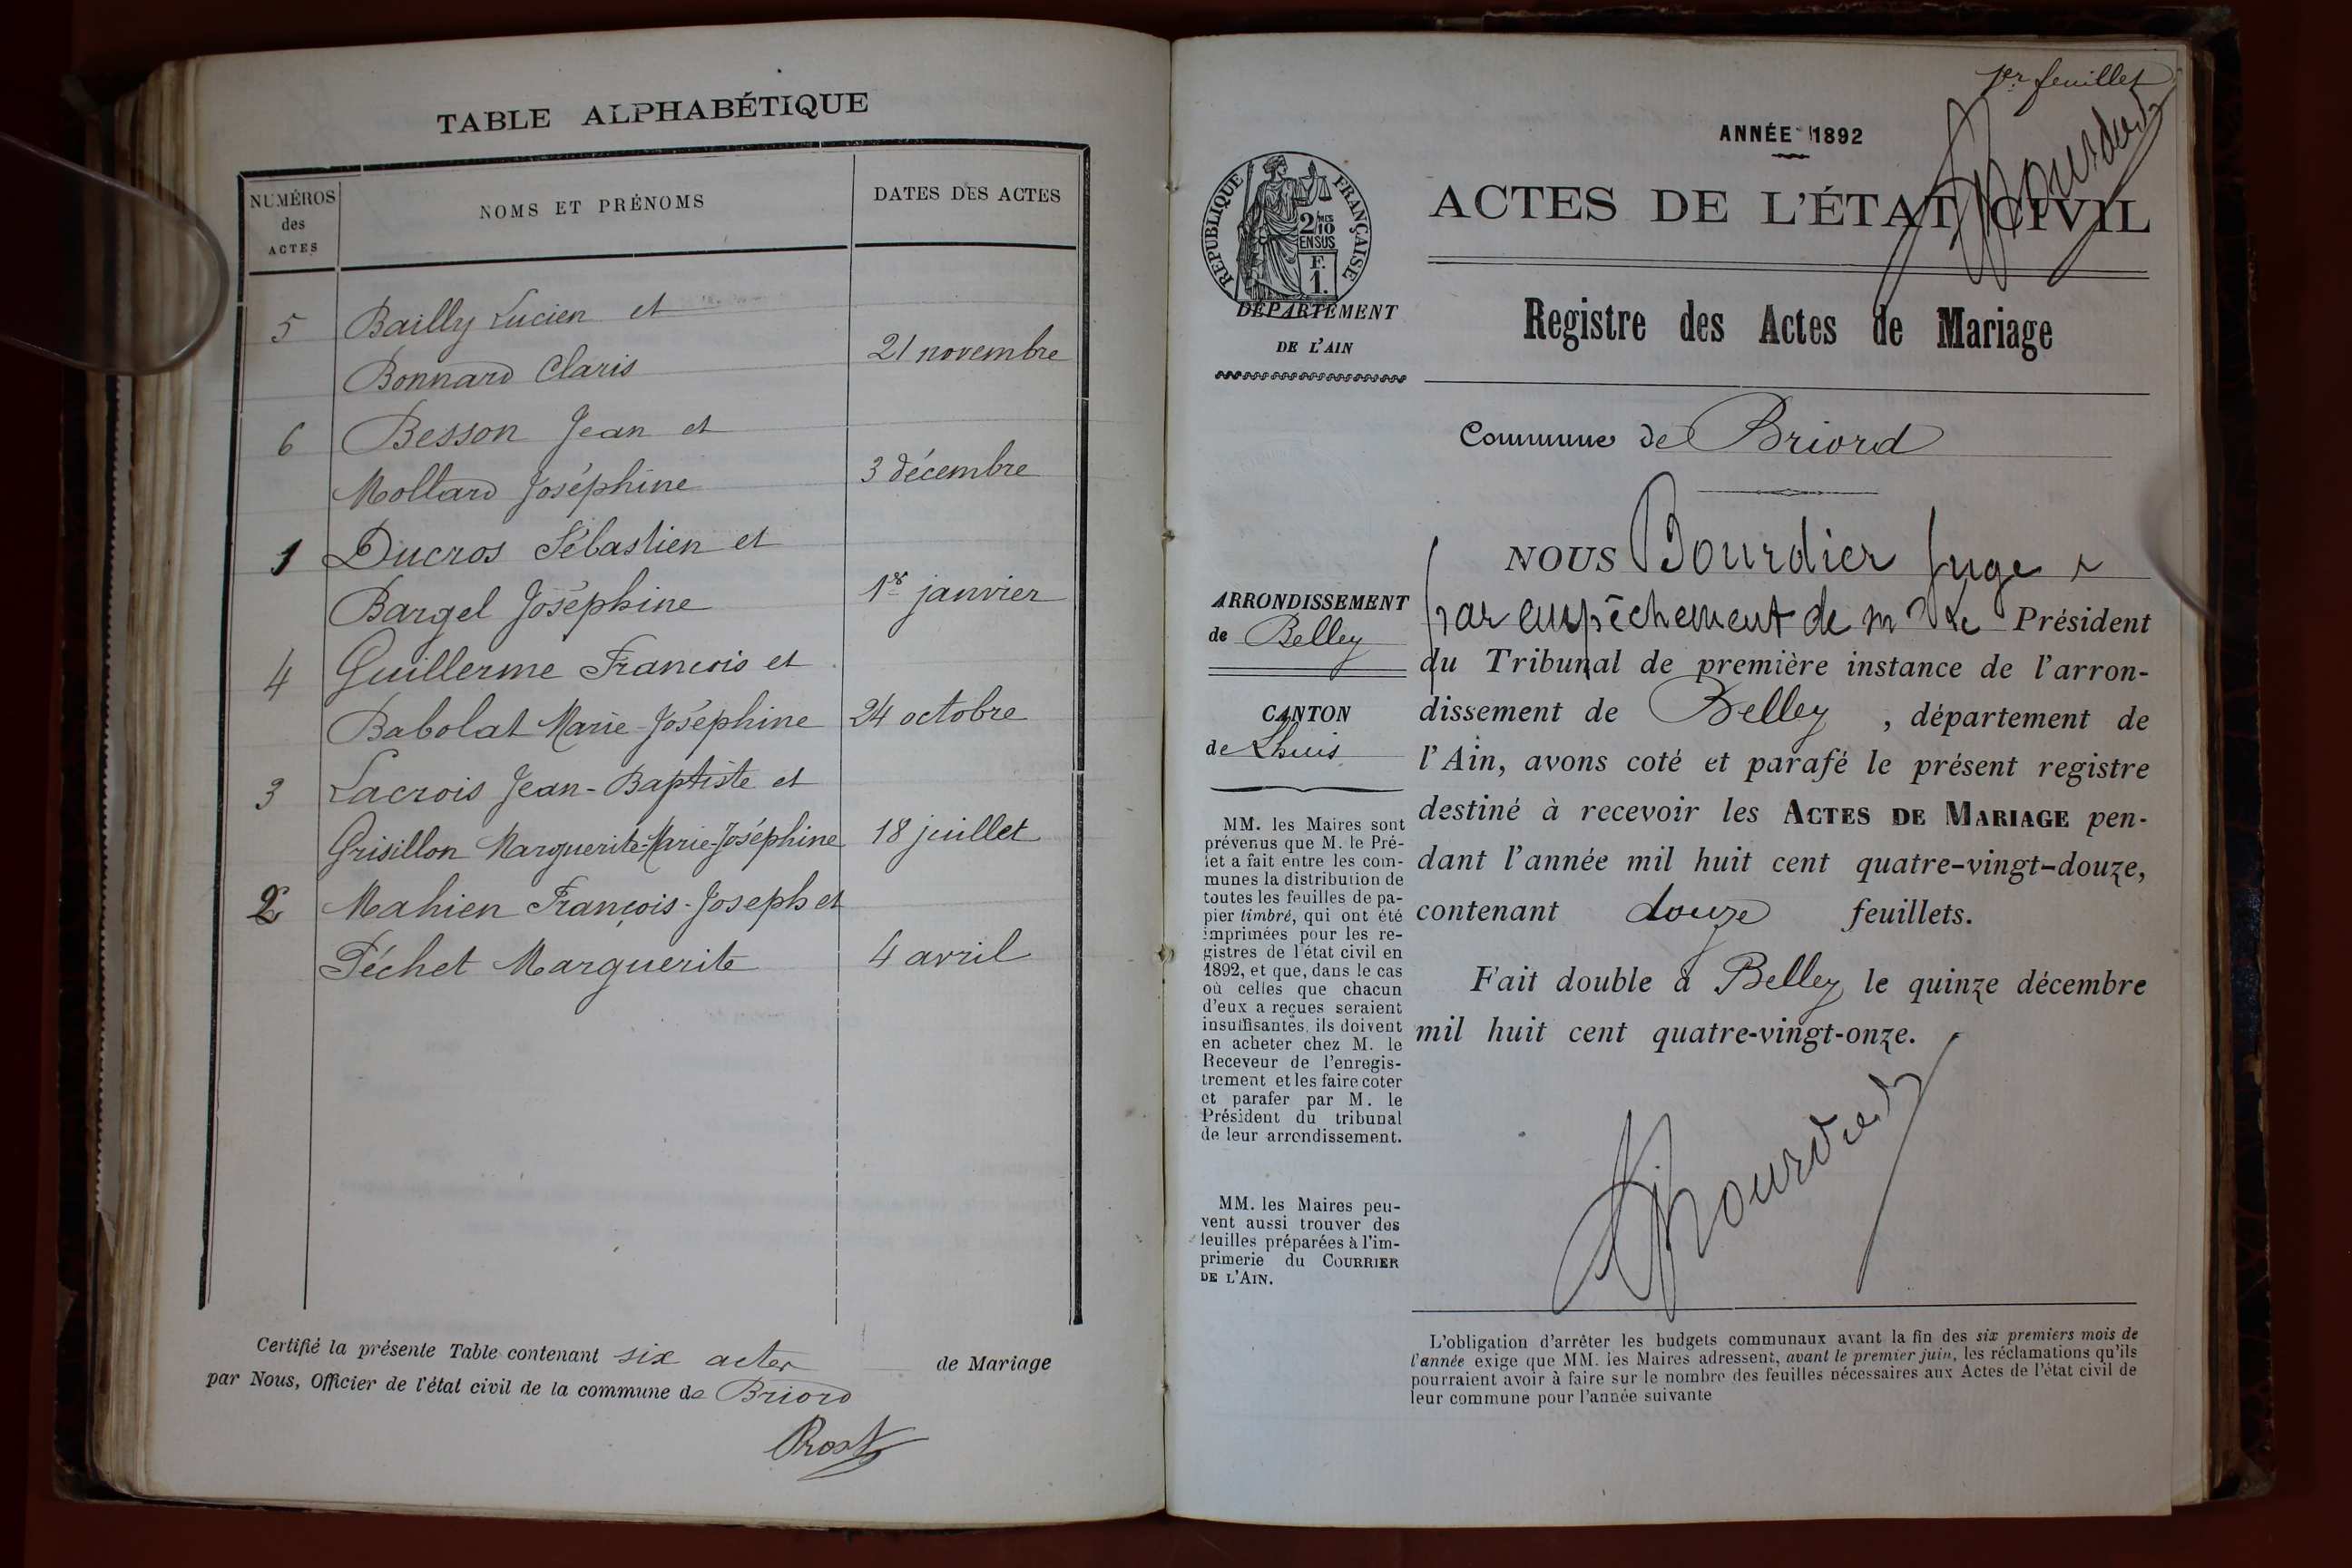 TABLE ALPHABÉTIQUE
NUMÉROS
des
ACTES
NOMS ET PRÉNOMS
DATES DES ACTES
5 Bailly Lucien et
Bonnard Claris 21 novembre
6 Besson Jean et
Mollard Joséphine 3 décembre
1 Ducros Sébastien et
Bargel Joséphine 1er janvier
4 Guillerme Francois et
Babolat Marie-Joséphine 24 octobre
3 Lacrois Jean-Baptiste et
Grisillon Marguerite-Marie-Joséphine 18 juillet
2 Mahien François-Joseph et
Péchet Marguerite 4 avril
Certifié la présente Table contenant six actes de Mariage
par Nous, Officier de l'état civil de la commune de Briord
Prost
1er feuillet
Bourdier
ANNÉE 1892
RÉPUBLIQUE FRANÇAISE
2/10
EN SUS
F.
1.
ACTES DE L'ÉTAT CIVIL
DÉPARTEMENT
DE L'AIN
Registre des Actes de Mariage
Commune de Briord
ARRONDISSEMENT
de Belley
CANTON
de Lhuis
MM. les Maires sont
prévenus que M. le Pré-
fet a fait entre les com-
munes la distribution de
toutes les feuilles de pa-
pier timbré, qui ont été
imprimées pour les re-
gistres de l'état civil en
1892, et que, dans le cas
où celles que chacun
d'eux a reçues seraient
insuffisantes, ils doivent
en acheter chez M. le
Receveur de l'enregis-
trement et les faire coter
et parafer par M. le
Président du tribunal
de leur arrondissement.
MM. les Maires peu-
vent aussi trouver des
feuilles préparées à l'im-
primerie du COURRIER
DE L'AIN.
NOUS Bourdier Juge
par empêchement de Mr Le Président
du Tribunal de première instance de l'arron-
dissement de Belley, département de
l'Ain, avons coté et parafé le présent registre
destiné à recevoir les ACTES DE MARIAGE pen-
dant l'année mil huit cent quatre-vingt-douze,
contenant douze feuillets.
Fait double à Belley le quinze décembre
mil huit cent quatre-vingt-onze.
Bourdier
L'obligation d'arrêter les budgets communaux avant la fin des six premiers mois de
l'année exige que MM. les Maires adressent, avant le premier juin, les réclamations qu'ils
pourraient avoir à faire sur le nombre des feuilles nécessaires aux Actes de l'état civil de
leur commune pour l'année suivante